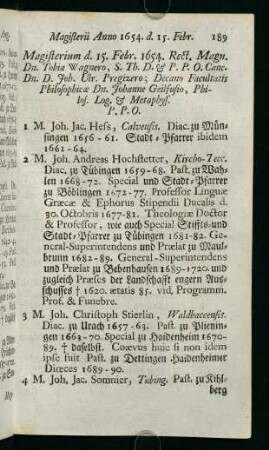 Magisterii Anno 1654. d. 15. Febr. 189
Magisterium d. 15. Febr. 1654. Rect. Magn.
Dn. Tobia Wagnero, S. Th. D. & P. P. O. Canc.
Dn. D. Joh. Ulr. Pregizero; Decano Facultatis
Philosophicæ Dn. Johanne Geilfusio, Phi-
los. Log. & Metaphys.
P. P. O.
1 M. Joh. Jac. Hess, Calvensis. Diac. zu Mün-
singen 1656-61. Stadt-Pfarrer ibidem
1661-64.
2 M. Joh. Andreas Hochstetter, Kircho-Tecc.
Diac. zu Tübingen 1659-68. Past. zu Wah-
len 1668-72. Special und Stadt-Pfarrer
zu Böblingen 1672-77. Professor Linguæ
Græcæ & Ephorus Stipendii Ducalis d.
30. Octobris 1677-81. Theologiæ Doctor
& Professor, wie auch Special Stiffts-und
Stadt-Pfarrer zu Tübingen 1681-82. Ge-
neral-Superintendens und Prælat zu Maul-
brunn 1682-89. General-Superintendens
und Prælat zu Bebenhausen 1689-1720. und
zugleich Præses der Landschafft engern Aus-
schusses † 1620. ætatis 85. vid. Programm.
Prof. & Funebre.
3 M. Joh. Christoph Stierlin, Waldhaccensis.
Diac. zu Urach 1657-63. Past. zu Plienin-
gen 1663-70. Special zu Haidenheim 1670-
89. † daselbst. Coævus huic si non idem
ipse fuit Past. zu Dettingen Haidenheimer
Diœces 1689-90.
4 M. Joh. Jac. Somnier, Tubing. Past. zu Kihl-
berg